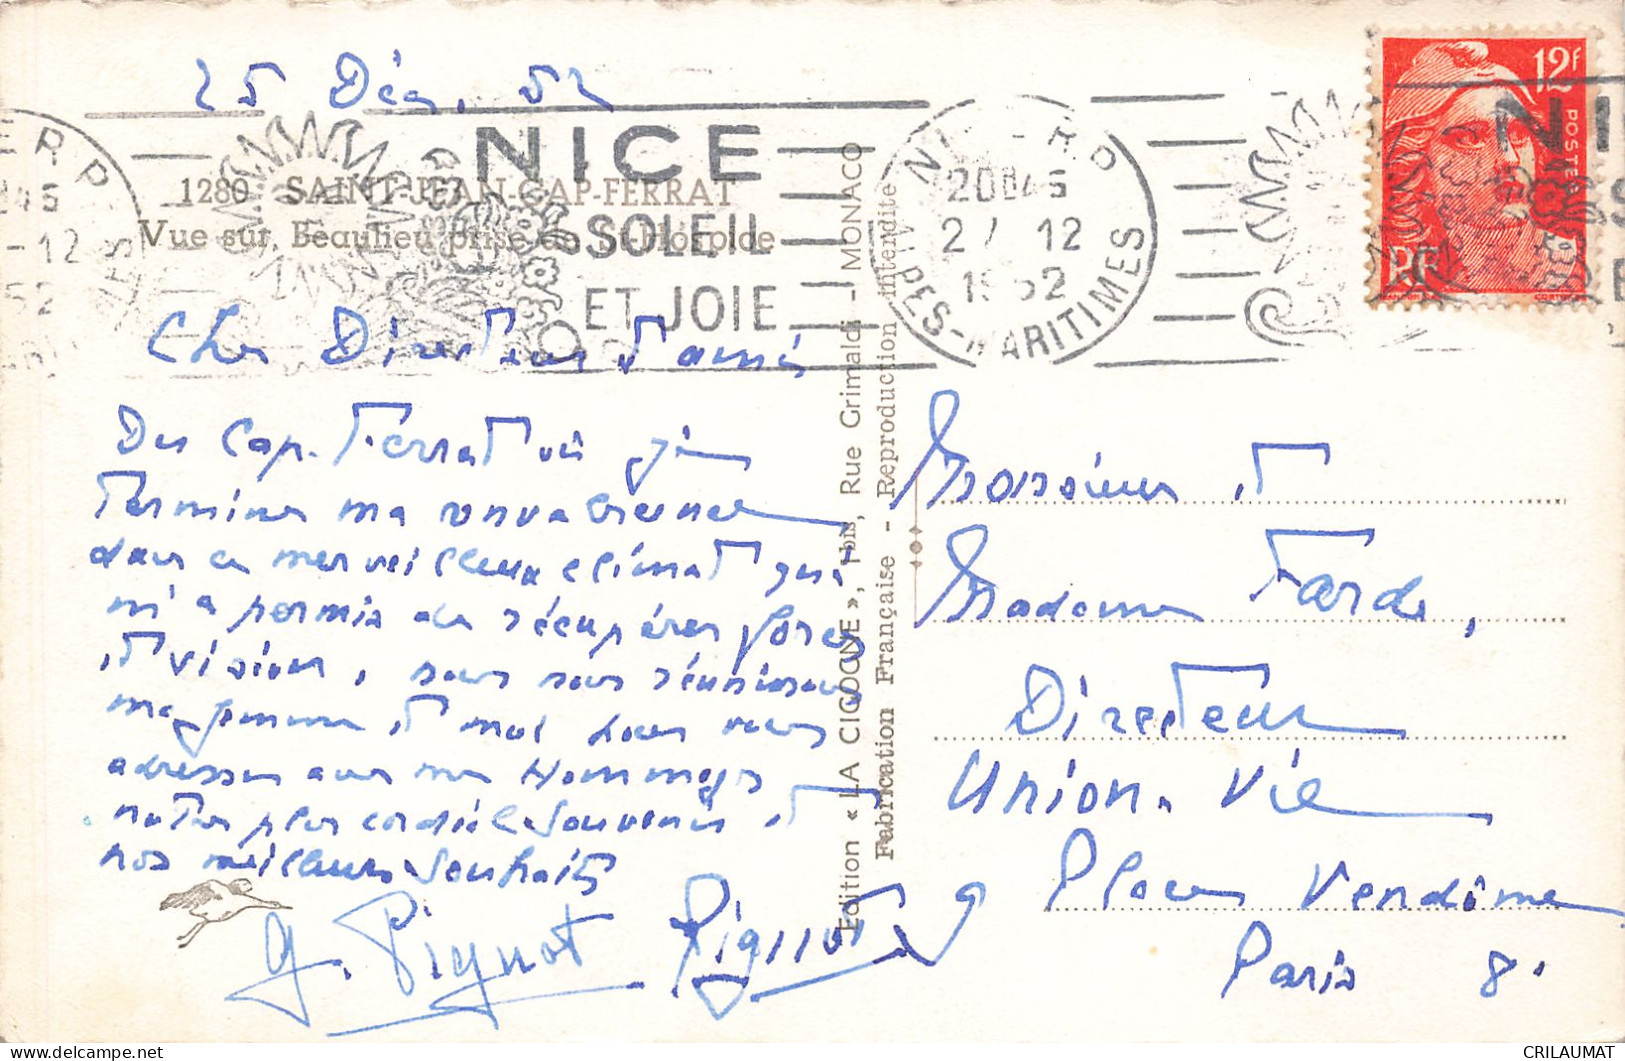 25 Déc. 52
NICE
SOLEIL
ET JOIE
1280 SAINT-JEAN-CAP-FERRAT
Vue sur Beaulieu prise de St-Hospice
Cher Directeur
Du Cap-Ferrat où je
termine ma convalescence
dans ce merveilleux climat qui
m'a permis de récupérer forces
et vision, nous nous réunissons
ma femme et moi pour vous
adresser avec mes Hommages
notre plus cordial Souvenir et
nos meilleurs Souhaits
G. Pignot Pignot
Edition « LA CIGOGNE », 1 bis, Rue Grimaldi - MONACO
Fabrication Française - Reproduction interdite
NI R.P
20H45
27 12
1952
ALPES-MARITIMES
E R.P
H45
-12
52
12F
POSTES
RF
GANDON
CORTOT
NI
S
E
Monsieur et
Madame Farde,
Directeur
Union-Vie
9 Place Vendôme
Paris 8.
CRILAUMAT